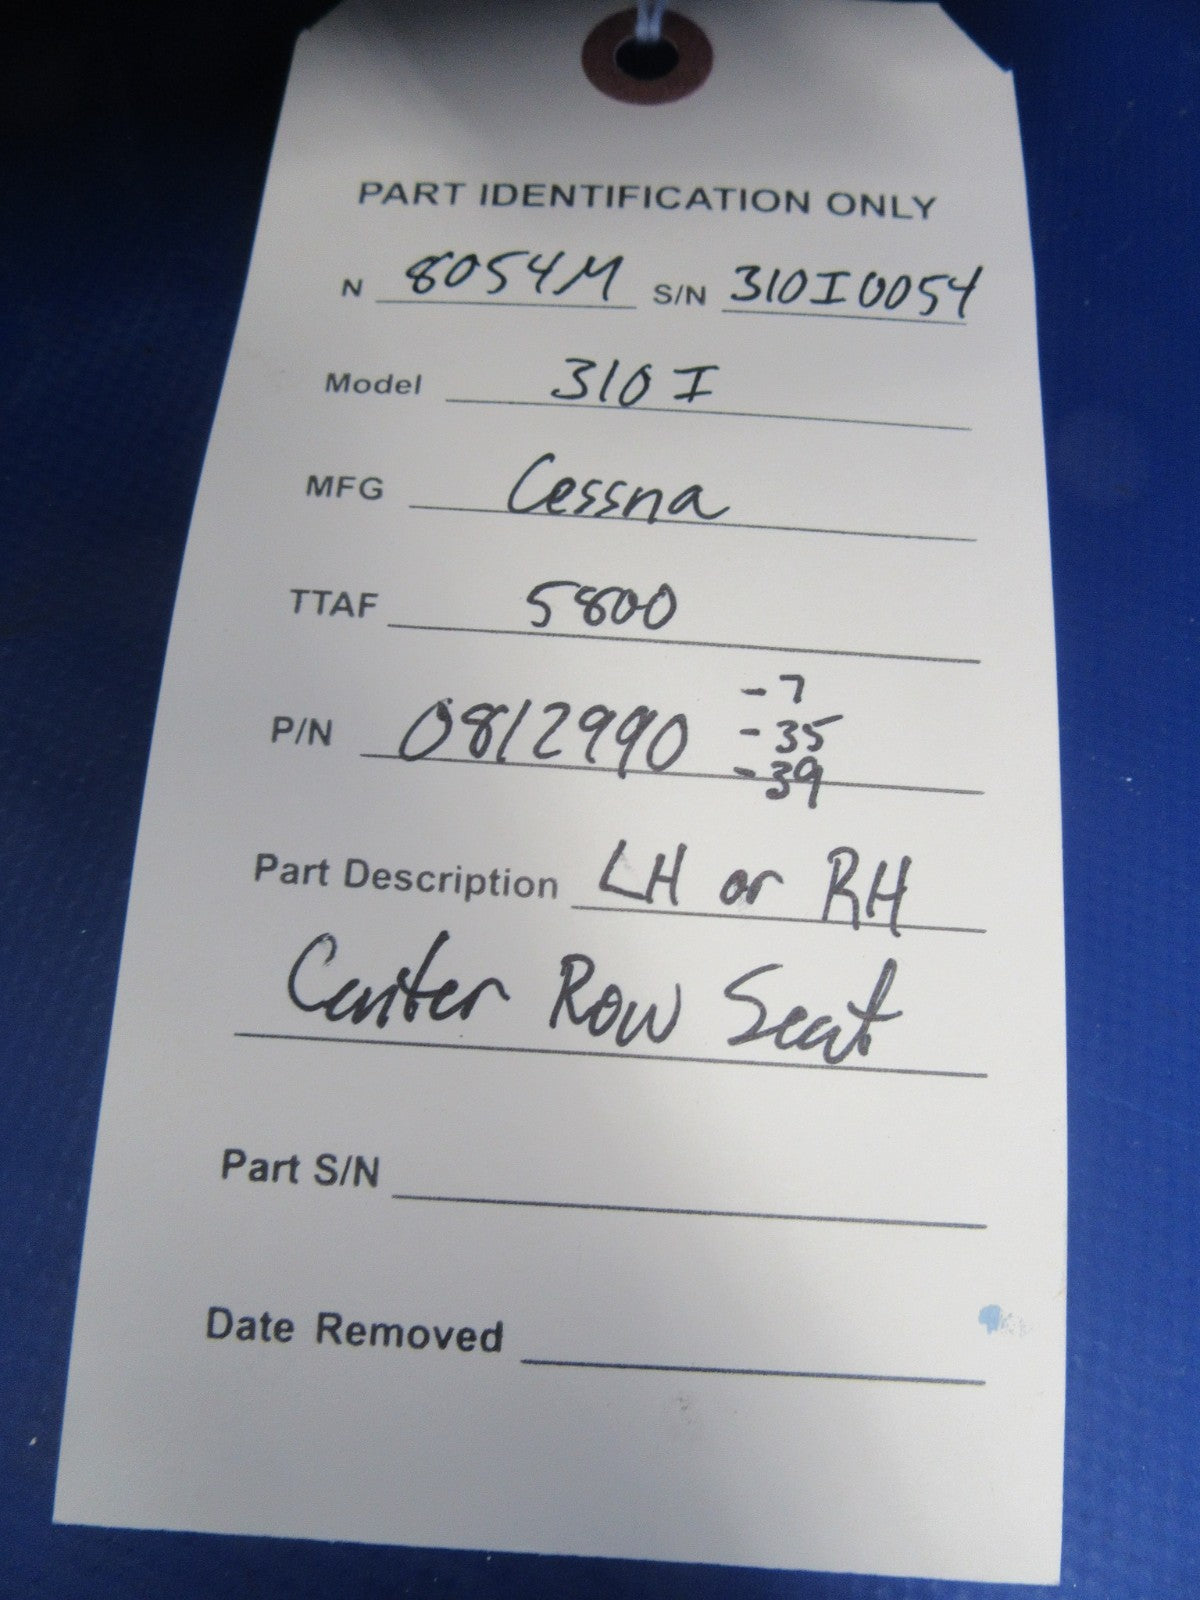 PART IDENTIFICATION ONLY
N 8054M S/N 310I0054
Model 310 I
MFG Cessna
TTAF 5800
P/N 0812990 -7
-35
-39
Part Description LH or RH
Center Row Seat
Part S/N
Date Removed